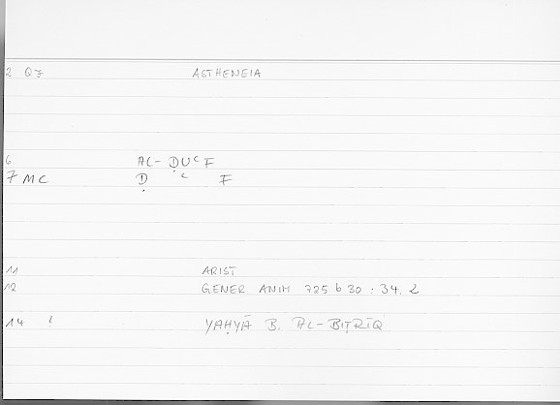 2 Q7 ASTHENEIA
6 AL- ḌUᶜF
7 MC Ḍ ᶜ F
11 ARIST
12 GENER ANIM 725 b 30 . 34. 2
14 YAḤYĀ B. AL-BIṬRĪQ